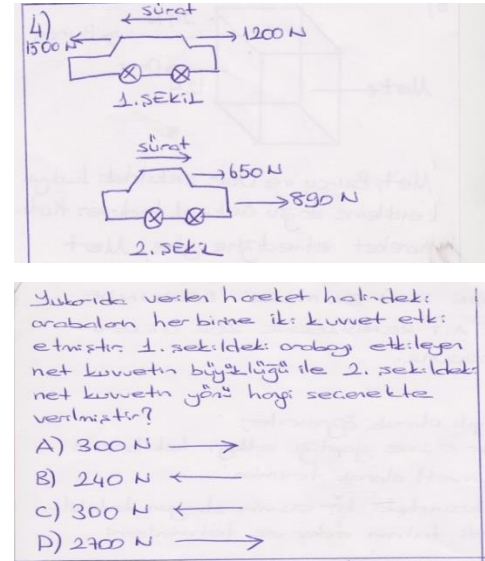 4)
sürat
1500 N
1200 N
1. ŞEKİL
sürat
650 N
890 N
2. ŞEKİL
Yukarıda verilen hareket halindeki
arabaların herbirine iki kuvvet etki
etmiştir. 1. şekildeki arabayı etkileyen
net kuvvetin büyüklüğü ile 2. şekildeki
net kuvvetin yönü hangi seçenekte
verilmiştir?
A) 300 N →
B) 240 N ←
C) 300 N ←
D) 2700 N →